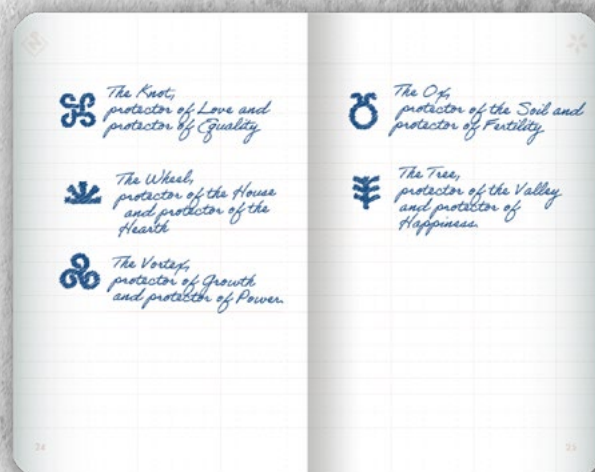 The Knot,
protector of Love and
protector of Equality
The Wheel,
protector of the House
and protector of the
Hearth
The Vortex,
protector of Growth
and protector of Power.
24
The Ox,
protector of the Soil and
protector of Fertility
The Tree,
protector of the Valley
and protector of
Happiness.